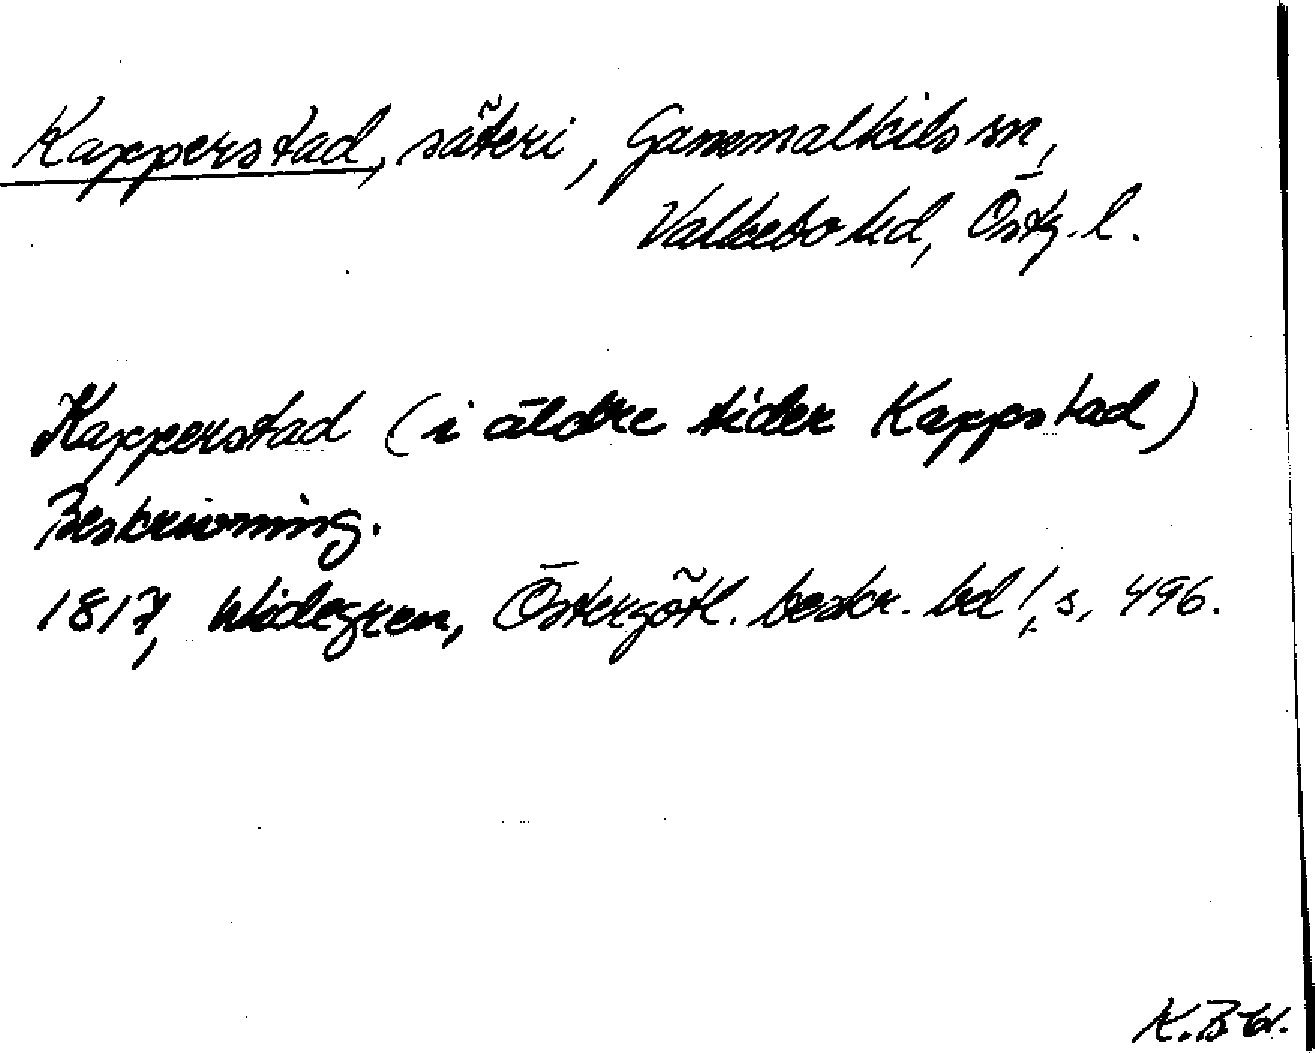 Kapperstad, säteri, Gammalkils sn,
Valkebo hd, Östg. l.
Kapperstad (i äldre tider Kappstad)
Beskrivning.
1817, Widegren, Östergötl. beskr. bd 1, s, 496.
K.B-W.